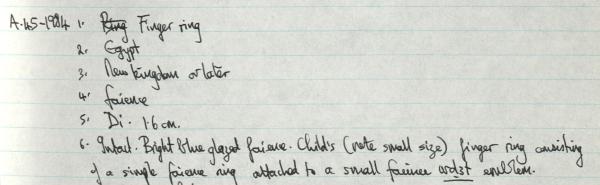 A.45-1984 1. Ring Finger ring
2. Egypt
3. New kingdom or later
4. faience
5. Di. 1.6 cm.
6. Intact. Bright blue glazed faience. Child's (note small size) finger ring consisting
of a simple faience ring attached to a small faience emblem.